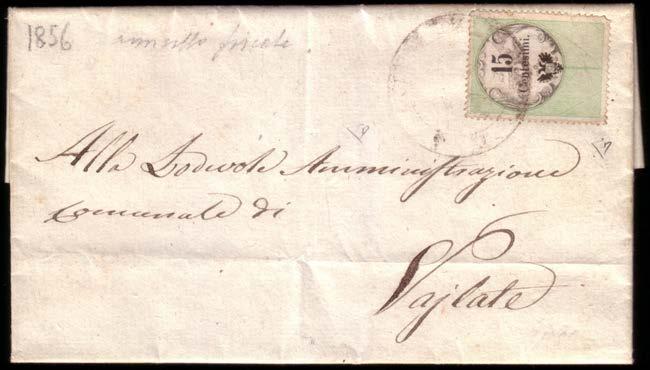 1856
15
Centesimi.
Alla Lodevole Amministrazione
Comunale di
Vajlate